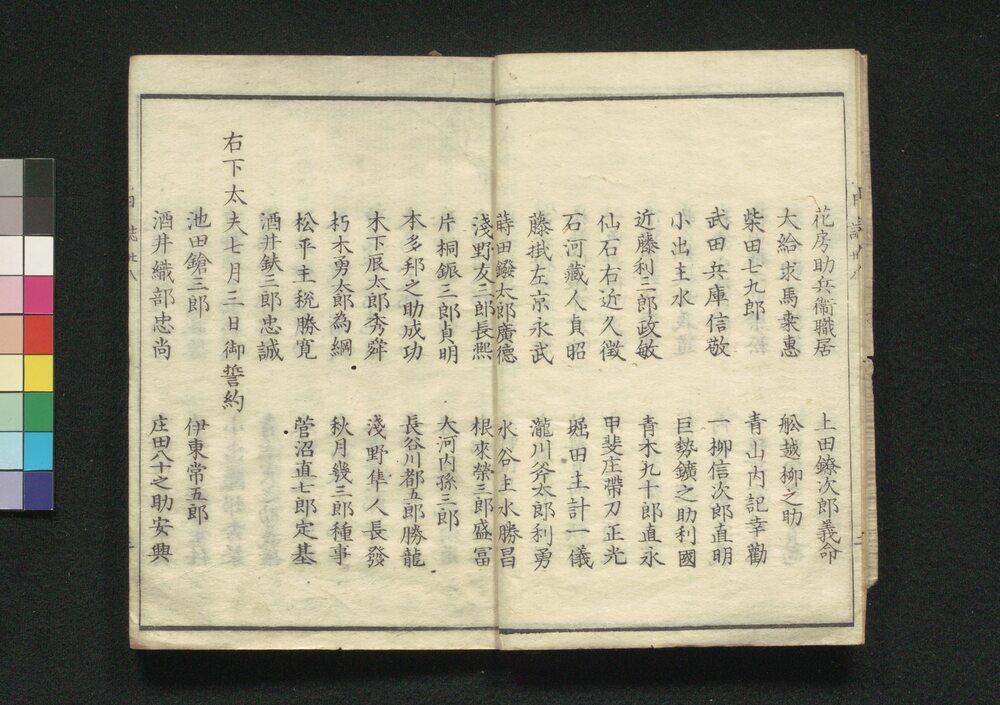 花房助兵衞職居　上田鐐次郎義命
大給求馬乗惠　舩越柳之助
柴田七九郎　青山内記幸勸
武田兵庫信敬　一柳信次郎直明
小出主水　巨勢鑛之助利國
近藤利三郎政敏　青木九十郎直永
仙石右近久徴　甲斐庄帶刀正光
石河藏人貞昭　堀田主計一儀
藤掛左京永武　瀧川斧太郎利勇
蒔田鏺太郎廣德　水谷主水勝昌
淺野友三郎長熙　根來榮三郎盛冨
片桐鋠三郎貞明　大河内孫三郎
本多邦之助成功　長谷川都五郎勝龍
木下辰太郎秀舜　淺野隼人長發
朽木勇太郎為綱　秋月幾三郎種事
松平主税勝寛　菅沼直七郎定基
酒井鉄三郎忠誠
右下太夫七月三日御誓約
池田鎗三郎　伊東常五郎
酒井織部忠尚　庄田八十之助安興
日誌廿八